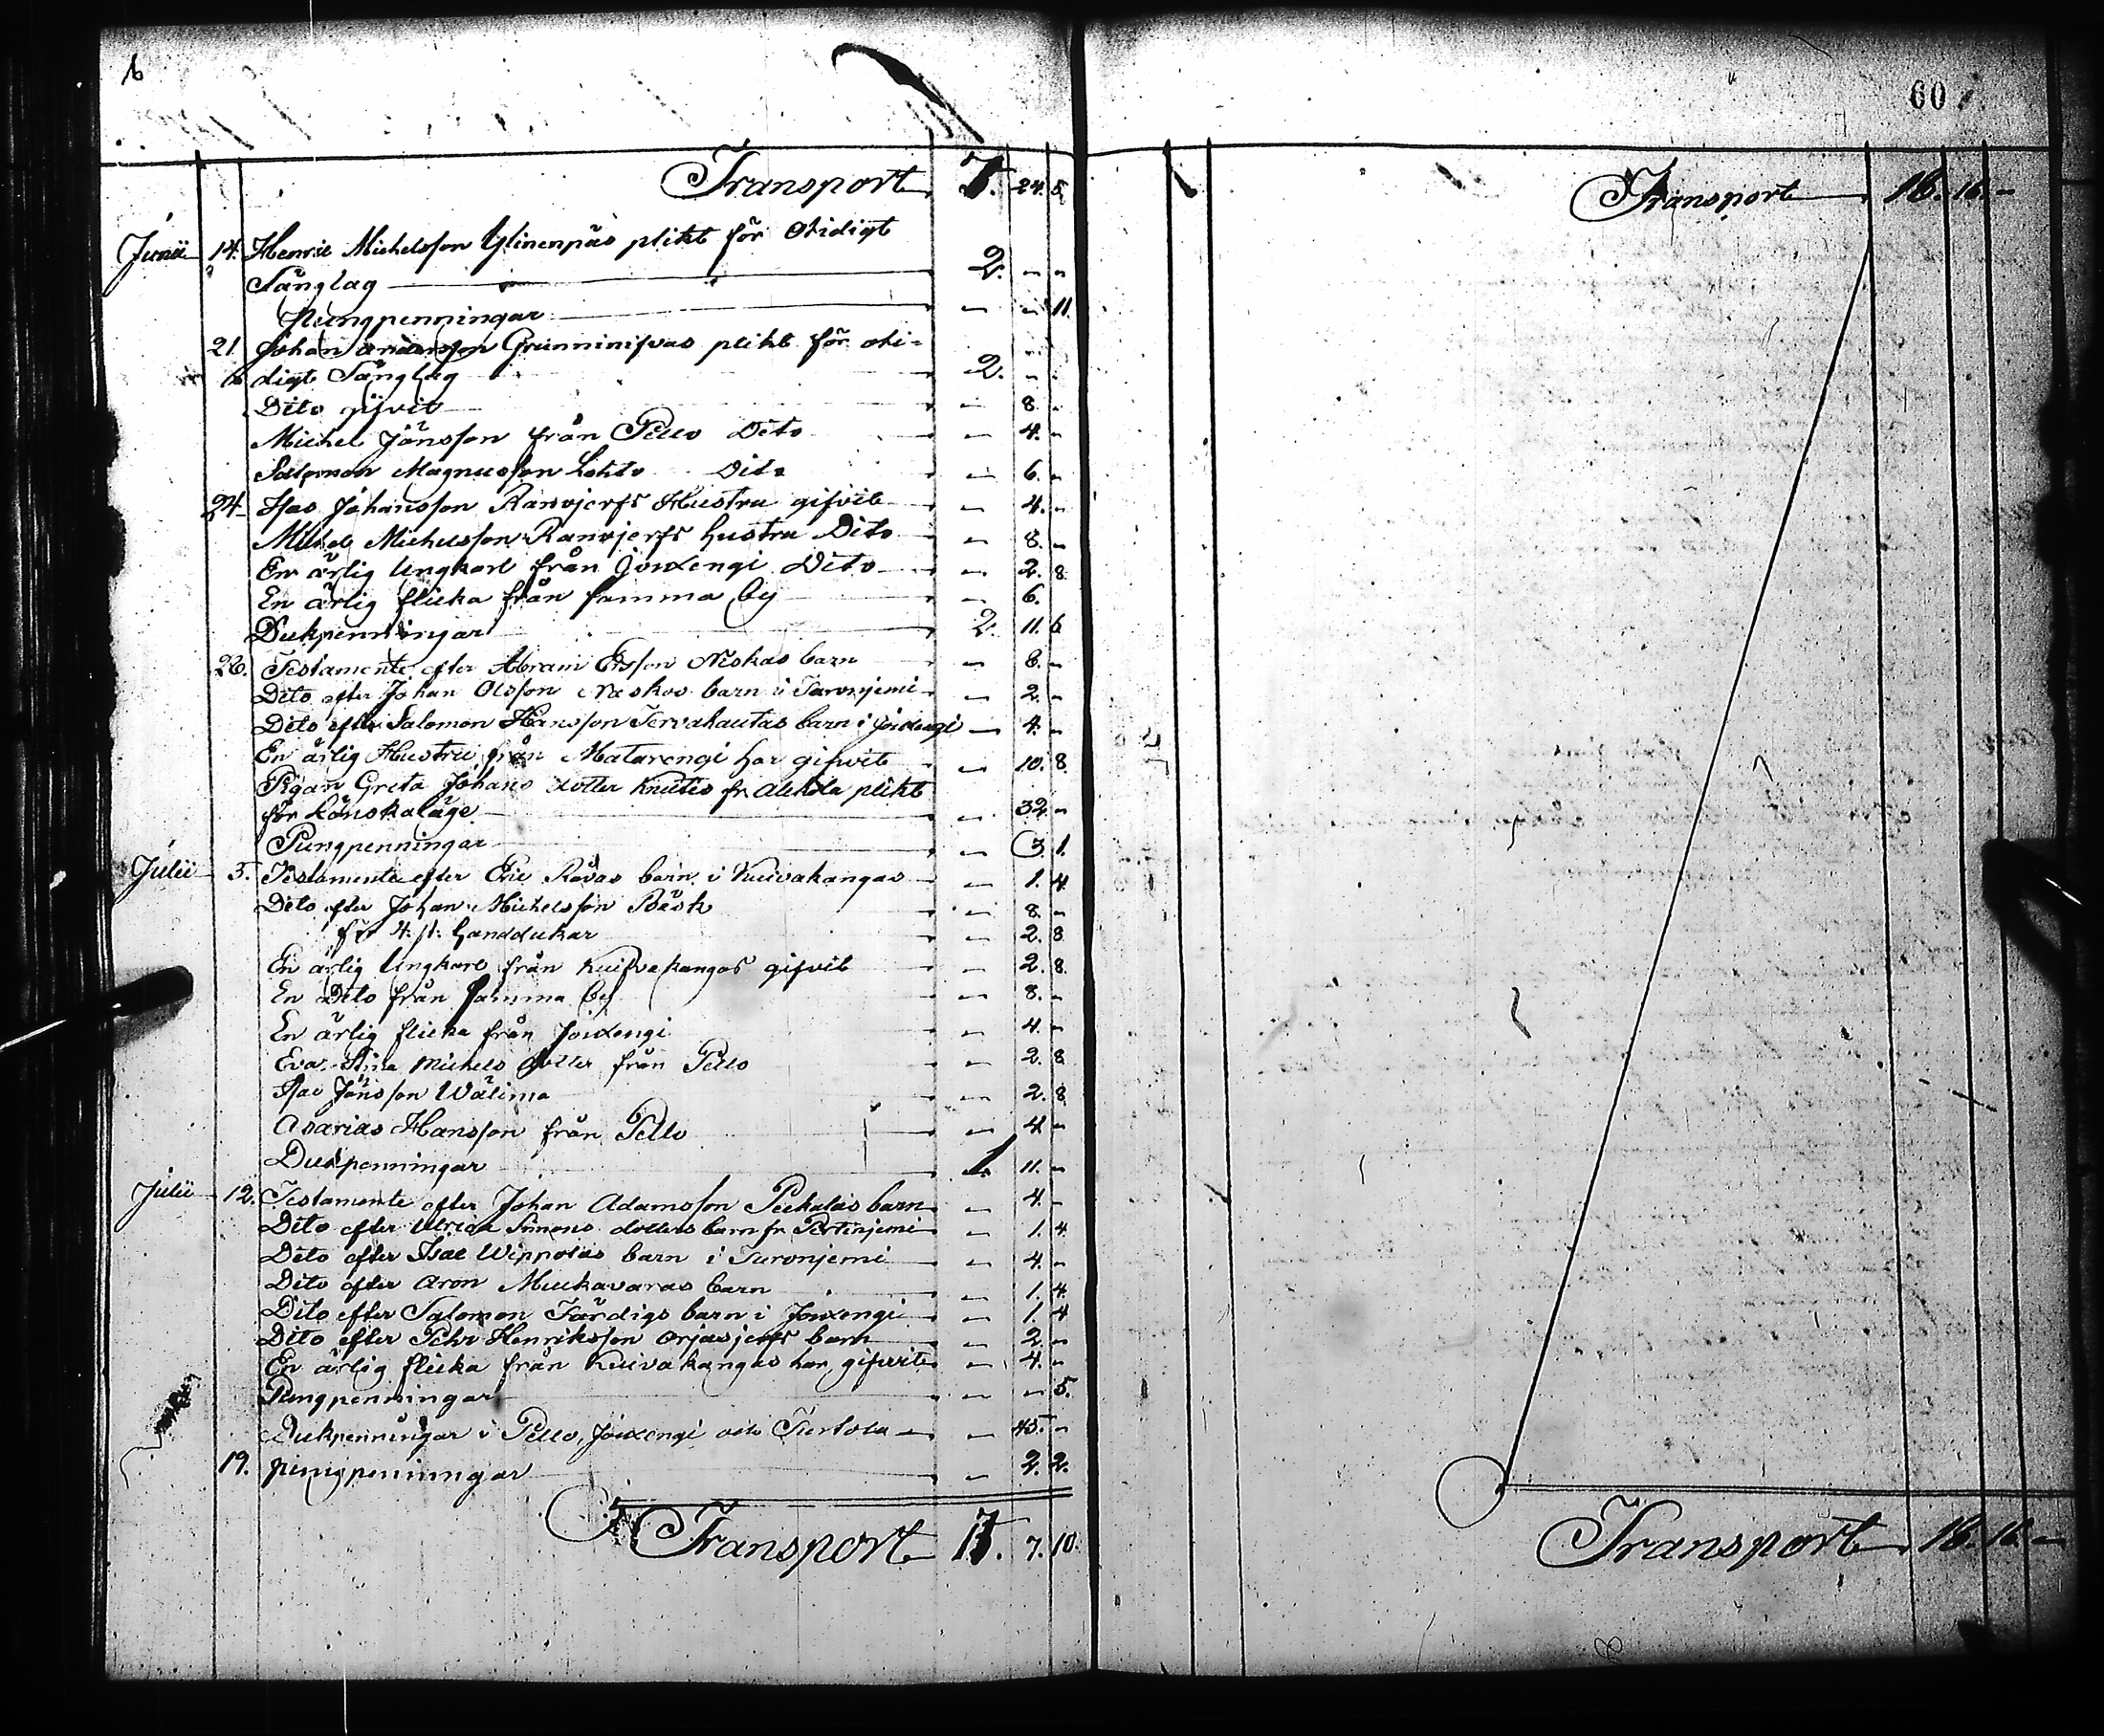 60
Transport 7. 24. 5.
Junii 14. Henric Michelsson Ylinenpäs plikt för otidigt
Sänglag 2. - -
Pungpenningar - - 11.
21 Johan andersson plikt för oti-
digt Sänglag 2. - -
Dito gifvit - 8. -
Michel Jönsson från Pello Dito - 4. -
Salomon Magnusson Lohto Dito - 6. -
24 Isac Johansson Ranvjerfs Hustru gifvit - 4. -
Michel Michelsson Ranvjerfs hustru Dito - 8. -
En ärlig Ungkarl från Jouxengi Dito - 2. 8.
En ärlig flicka från samma by - 6.
Dukpenningar 2. 11. 6
26. Testamente efter Abram Ersson Niskas barn - 8. -
Dito efter Johan Olsson Niskas barn i Turonjemi - 2. -
Dito efter Salomon Hansson Tervahautas barn i Joixengi - 4. -
En ärlig Hustru från Matarengi har gifwit - 10. 8.
Pigan Greta Johans dotter Knuts fr. Alkula plikt
för Lönskaläge - 32. -
Pungpenningar - 3. 1.
Julii 5. Testamente efter Eric Råvas barn i Kuivakangas - 1. 4
Dito efter Johan Michelsson Bäsk - 8. -
för 4. st. handdukar - 2. 8
En ärlig Ungkarl från Kuifvakangas gifvit - 2. 8.
En Dito från samma by - 8. -
En ärlig flicka från Joixengi - 4. -
Eva Stina Michels dotter från Pello - 2. 8
Isac Jönsson Wälima - 2. 8.
Asarias Hansson från Pello - 4 -
Dukpenningar 1. 11. -
Julii 12. Testamente efter Johan Adamsson Peckalas barn - 4. -
Dito efter Ulrica Simons dotters barn fr. Portinjemi - 1. 4.
Dito efter Isac Wippolas barn i Turonjemi - 4. -
Dito efter Aron Muckavaras barn - 1. 4.
Dito efter Salomon Färdigs barn i Jouxengi - 1. 4
Dito efter Pehr Henriksson orjasjerfs barn - 2. -
En ärlig flicka från Kuivakangas har gifwit - 4. -
Pungpenningar - - 5.
Dukpenningar i Pello, Joixengi och Turtola - 45. -
19. pungpenningar - 2. 2.
Transport 17. 7. 10.
Transport 18. 16. -
Transport 18. 16. -